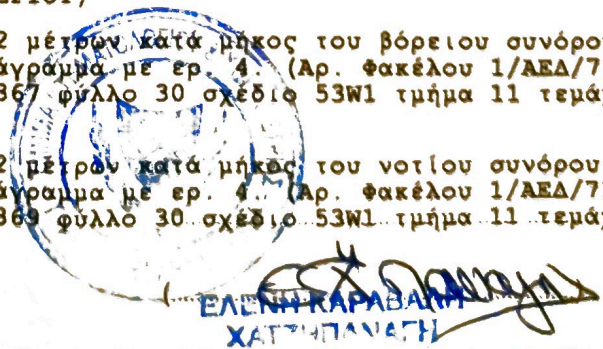 2 μέτρων κατά μήκος του βόρειου συνόρο
άγραμμα με ερ. 4. (Αρ. Φακέλου 1/ΑΕΔ/7
367 φύλλο 30 σχέδιο 53W1 τμήμα 11 τεμά
2 μέτρων κατά μήκος του νοτίου συνόρου
άγραμμα με ερ. 4. (Αρ. Φακέλου 1/ΑΕΔ/7
369 φύλλο 30 σχέδιο 53W1 τμήμα 11 τεμά
ΕΛΕΝΗ ΚΑΡΑΒΑΛΗ
ΧΑΤΖΗΠΑΝΑΓΗ